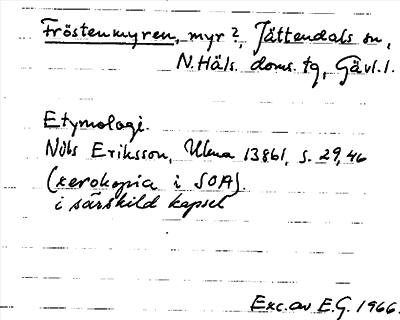 Fröstenmyren, myr?, Jättendals sn,
N.Häls. doms. tg, Gävl.l.
Etymologi.
Nils Eriksson, Ulma 13861, s. 29, 46
(xerokopia i SOA).
i särskild kapsel
Exc. av E.G. 1966.